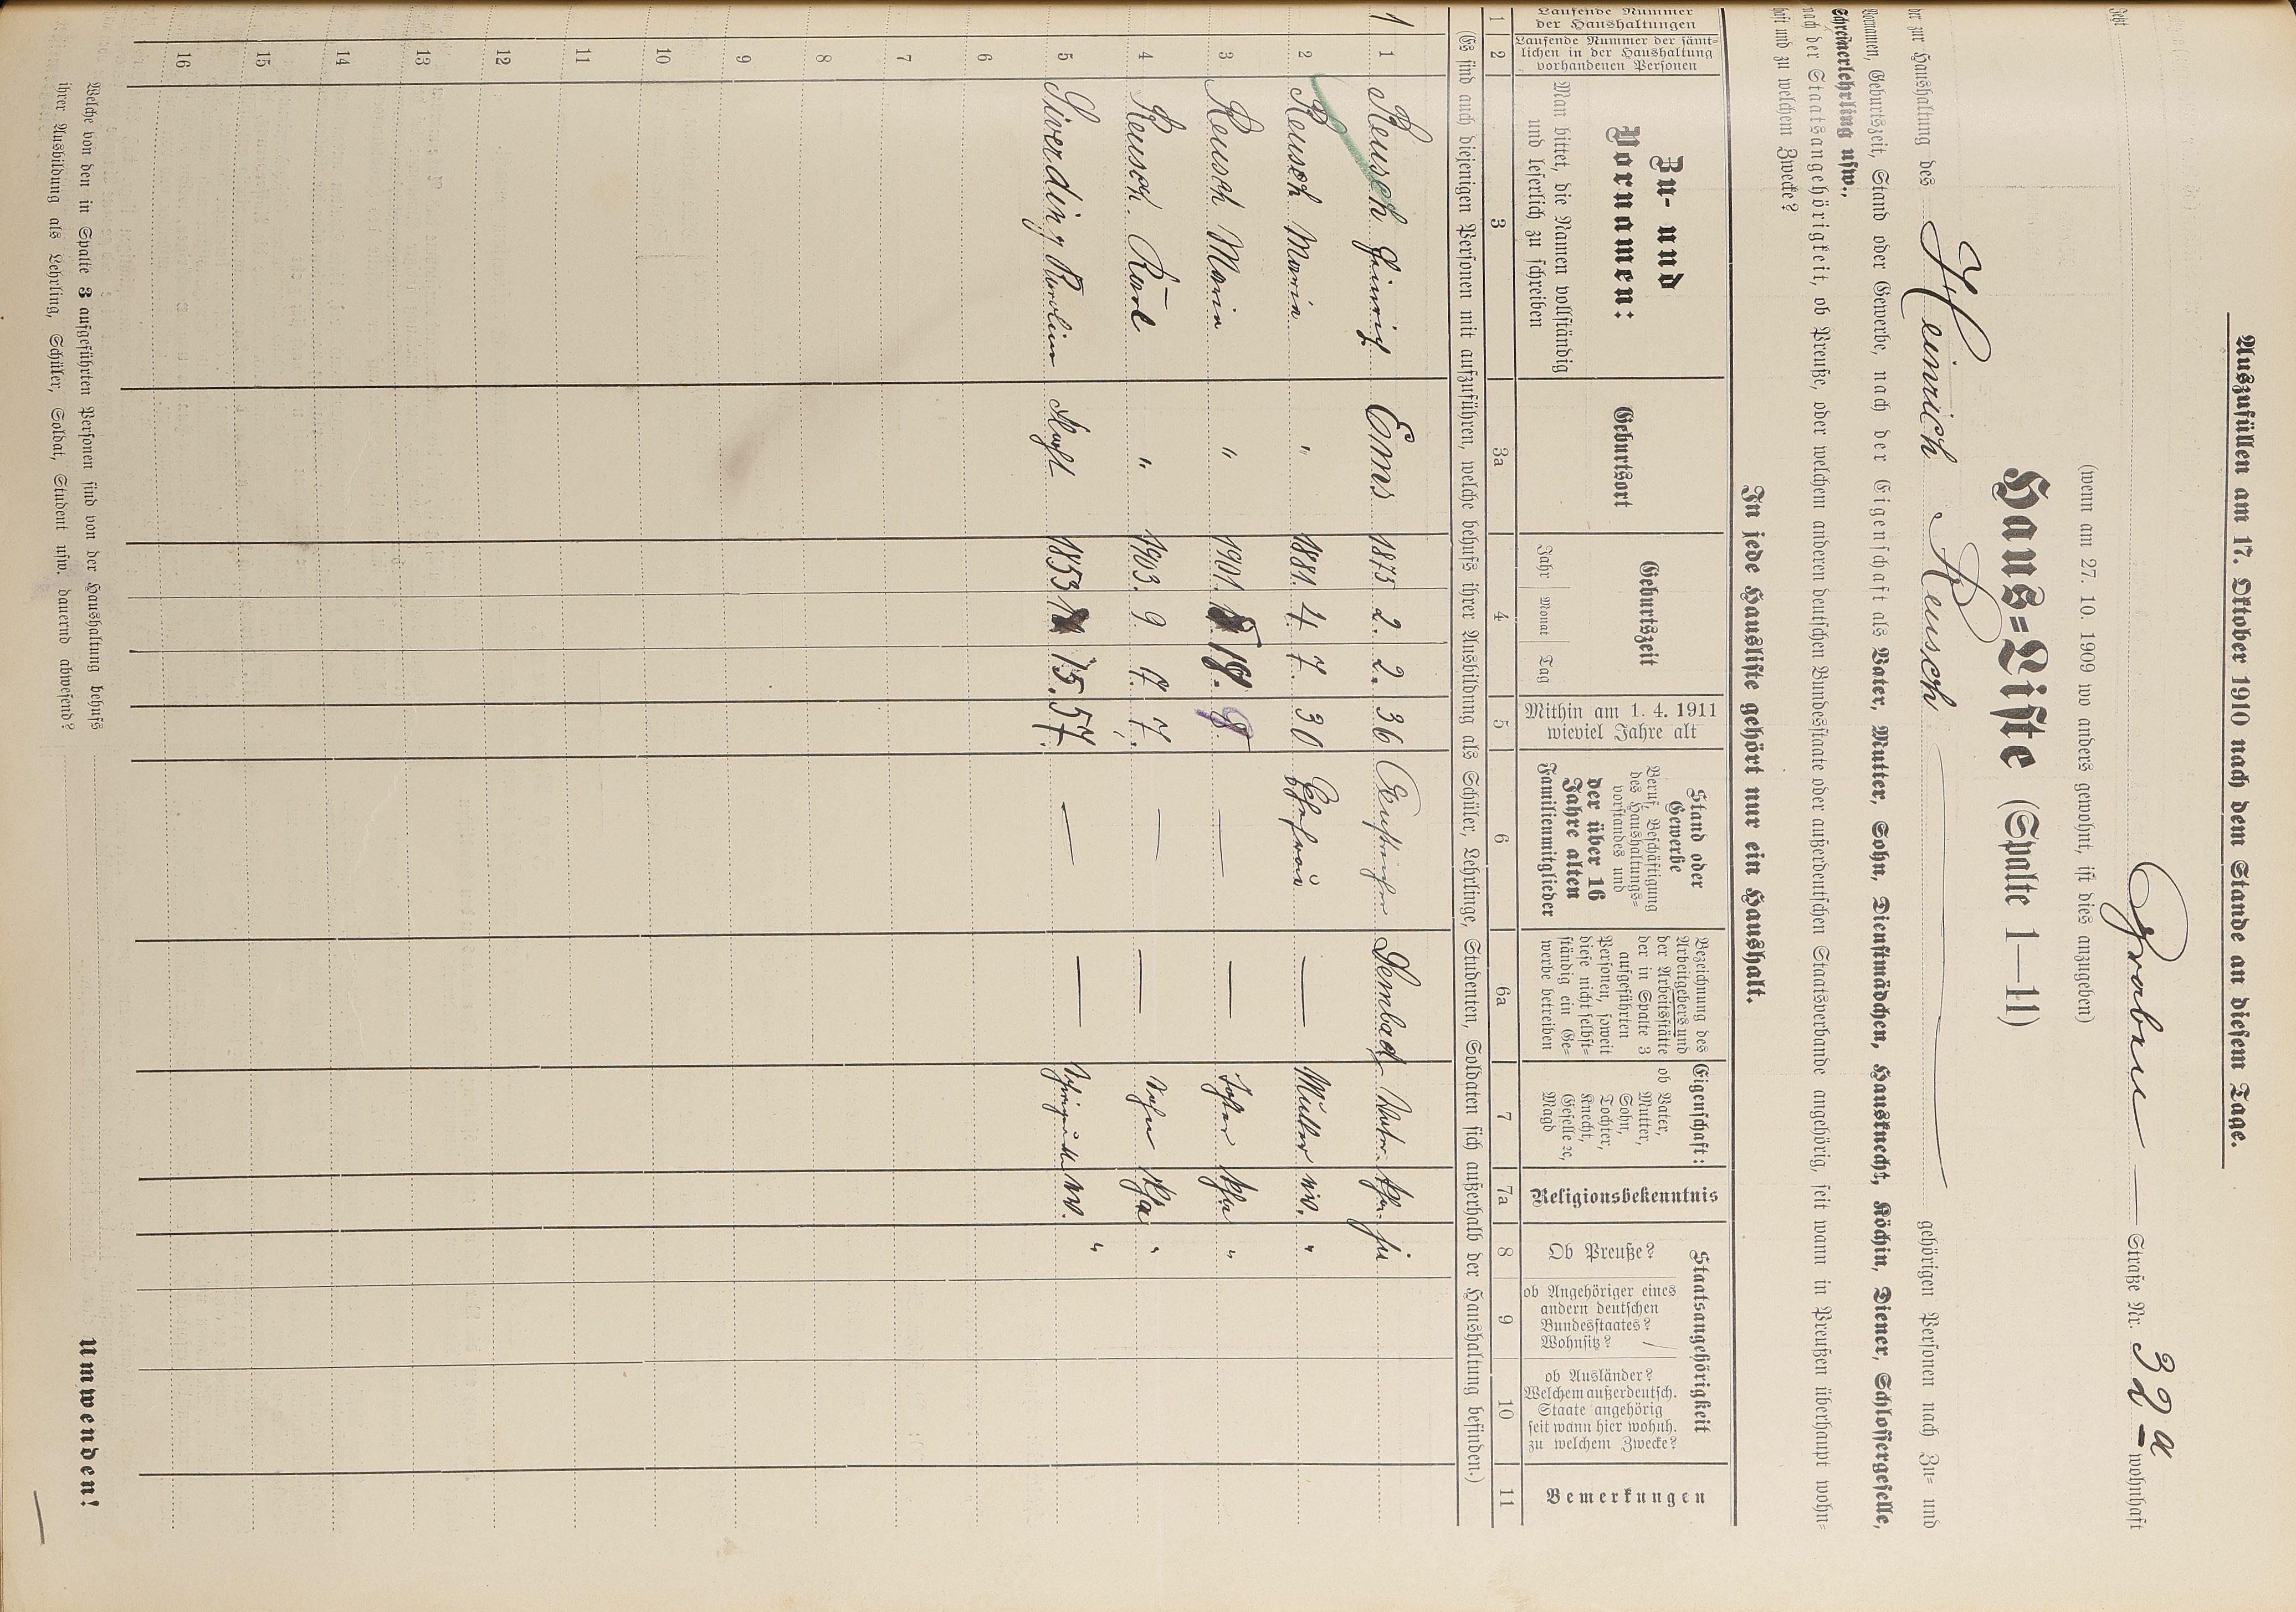 Auszufüllen am 17. Oktober 1910 nach dem Stande an diesem Tage.
Jetzt Graben Straße Nr. 32 a wohnhaft
(wenn am 27. 10. 1909 wo anders gewohnt, ist dies anzugeben)
Haus-Liste (Spalte 1—11)
der zur Haushaltung des Heinrich Reusch gehörigen Personen nach Zu- und
Vornamen, Geburtszeit, Stand oder Gewerbe, nach der Eigenschaft als Vater, Mutter, Sohn, Dienstmädchen, Hausknecht, Köchin, Diener, Schlossergeselle,
Schreinerlehrling usw.,
nach der Staatsangehörigkeit, ob Preuße, oder welchen anderen deutschen Bundesstaate oder außerdeutschen Staatsverbande angehörig, seit wann in Preußen überhaupt wohn-
haft und zu welchem Zwecke?
In jede Hausliste gehört nur ein Haushalt.
Laufende Nummer der Haushaltungen
Laufende Nummer der sämt-lichen in der Haushaltung vorhandenen Personen
Zu- und Vornamen:
Man bittet, die Namen vollständig und leserlich zu schreiben
Geburtsort
Geburtszeit
Jahr Monat Tag
Mithin am 1. 4. 1911 wieviel Jahre alt
Stand oder Gewerbe
Beruf, Beschäftigung des Haushaltungs-vorstandes und
der über 16 Jahre alten Familienmitglieder
Bezeichnung des Arbeitgebers und der Arbeitsstätte der in Spalte 3 aufgeführten Personen, soweit diese nicht selbst-ständig ein Ge-werbe betreiben
Eigenschaft:
ob Vater, Mutter, Sohn, Tochter, Knecht, Geselle ec, Magd
Religionsbekenntnis
Staatsangehörigkeit
Ob Preuße?
ob Angehöriger eines andern deutschen Bundesstaates? Wohnsitz?
ob Ausländer? Welchem außerdeutsch. Staate angehörig seit wann hier wohnh. zu welchem Zwecke?
Bemerkungen
1 2 3 3a 4 5 6 6a 7 7a 8 9 10 11
(Es sind auch diejenigen Personen mit aufzuführen, welche behufs ihrer Ausbildung als Schüler, Lehrlinge, Studenten, Soldaten sich außerhalb der Haushaltung befinden.)
1 1 Reusch Heinrich Ems 1875 2. 2. 36 Vater
2 Reusch Maria " 1881. 4. 7. 30 Ehefrau — Mutter "
3 Reusch Maria " 1901. — — Tochter "
4 Reusch. Karl " 1903. 9. 17. 7. — — Sohn "
5 1853 15. 57. — — "
6
7
8
9
10
11
12
13
14
15
16
Welche von den in Spalte 3 aufgeführten Personen sind von der Haushaltung behufs
ihrer Ausbildung als Lehrling, Schüler, Soldat, Student usw. dauernd abwesend?
Umwenden!